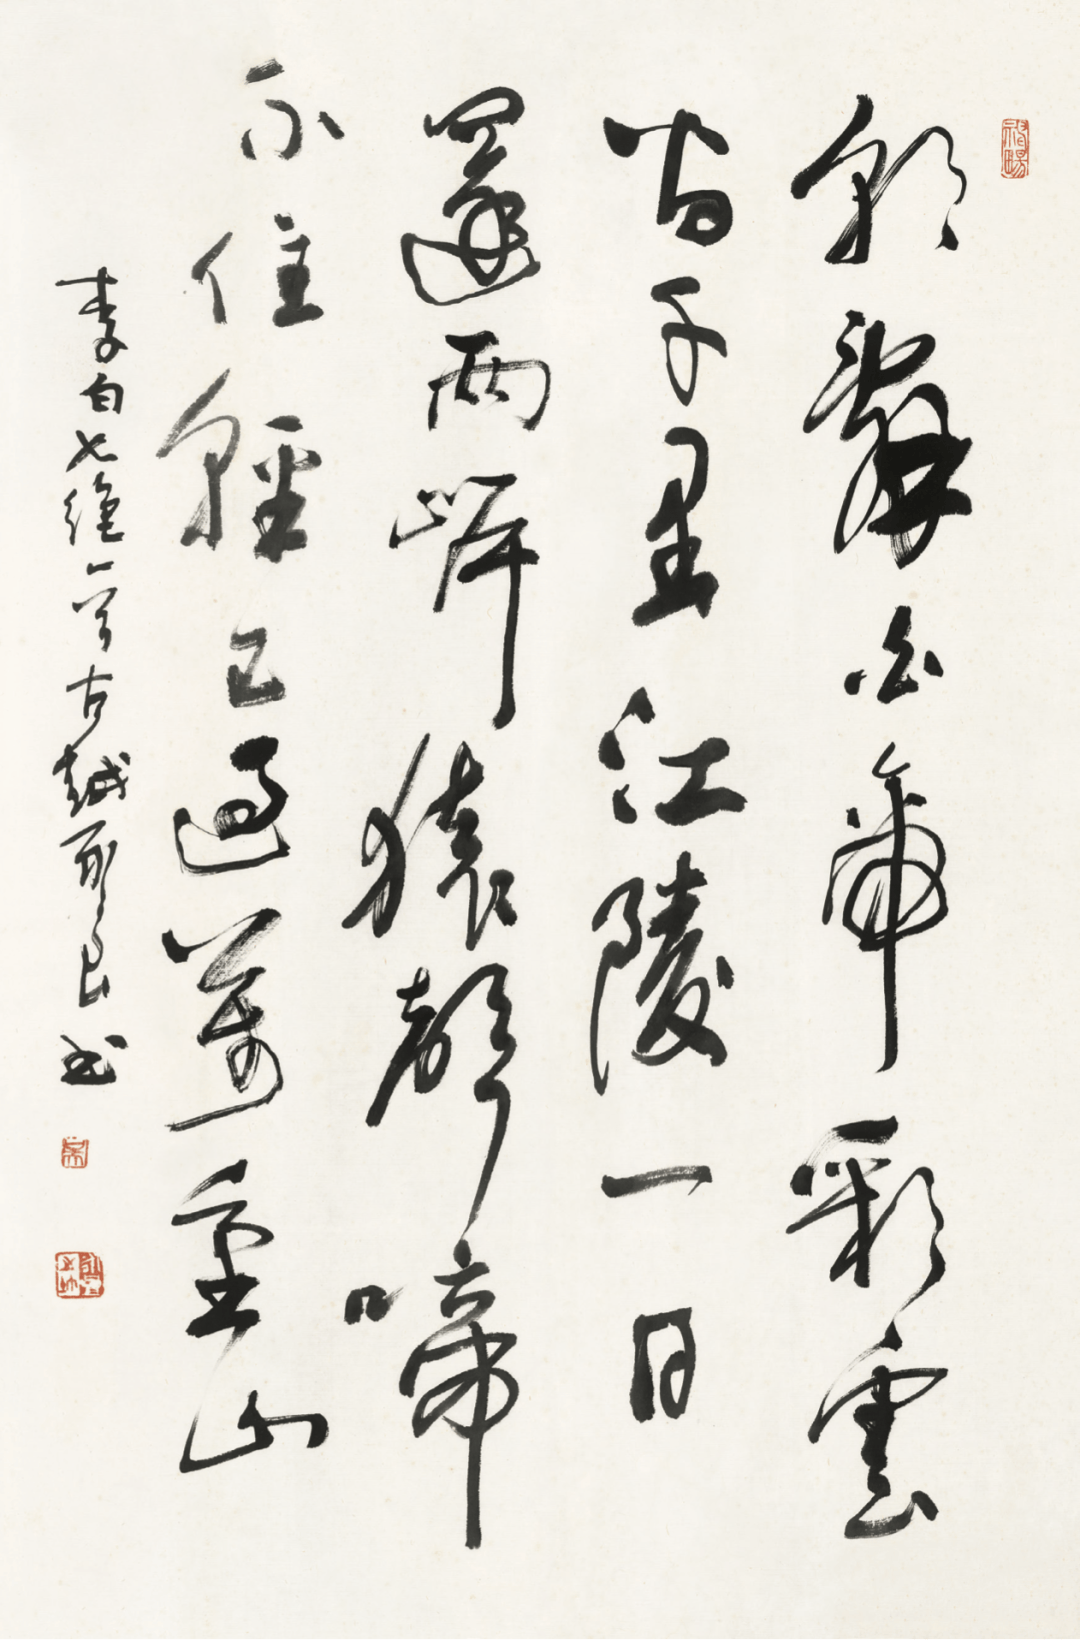 朝辭白帝彩雲
間千里江陵一日
還兩岸猿聲啼
不住輕已過萬重山
李白七絕一首古越良書